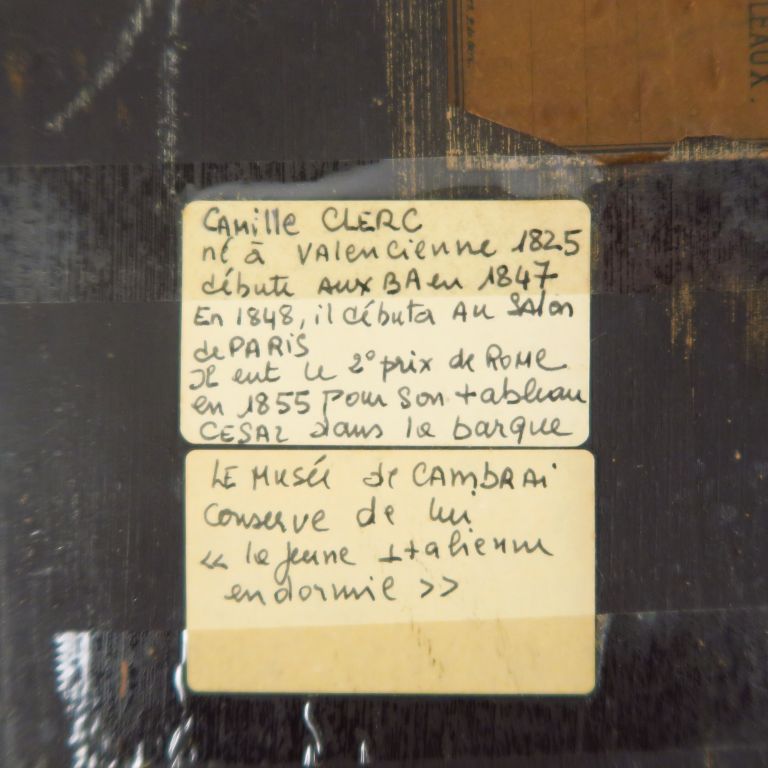 LEAUX.
CAMille CLERC
né à VALENCIENNE 1825
débute AUX BA en 1847
En 1848, il débuta AU SALon
de PARIS
Il eut le 2° prix de ROME
en 1855 pour Son tableau
CESAR dans la barque
LE MUSée de CAMbRAi
Conserve de lui
« la jeune Italienne
endormie »